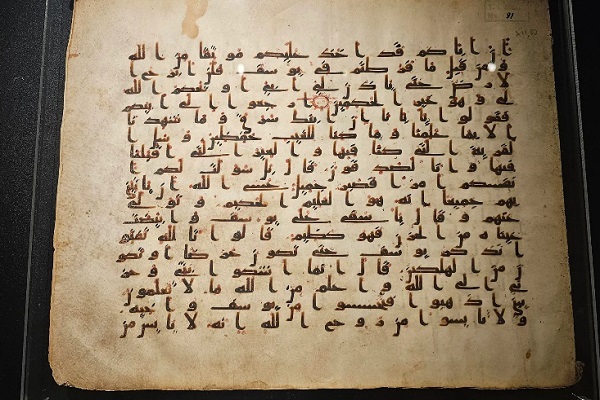 91
ان اباكم قد اخذ عليكم موثقا من الله
و من قبل ما فرطتم في يوسف فلن ابرح ا
لارض حتى ياذن لي ابي او يحكم الله
لي و هو خير الحكمين ارجعوا الى ابيكم
فقولوا يابانا ان ابنك سرق و ما شهدنا
الا بما علمنا و ما كنا للغيب حفظين و سل ا
لقرية التي كنا فيها و العير التي اقبلنا
فيها و انا لصدقون قال بل سولت لكم ا
نفسكم امرا فصبر جميل عسى الله ان ياتيني
بهم جميعا انه هو العليم الحكيم و تولى
عنهم و قال ياسفى على يوسف و ابيضت
عينه من الحزن فهو كظيم قالوا تالله تفتوا
تذكر يوسف حتى تكون حرضا او تكو
ن من الهلكين قال انما اشكوا بثي و حز
ني الى الله و اعلم من الله ما لا تعلمون
يبني اذهبوا فتحسسوا من يوسف و اخيه
و لا تايسوا من روح الله انه لا يايس من